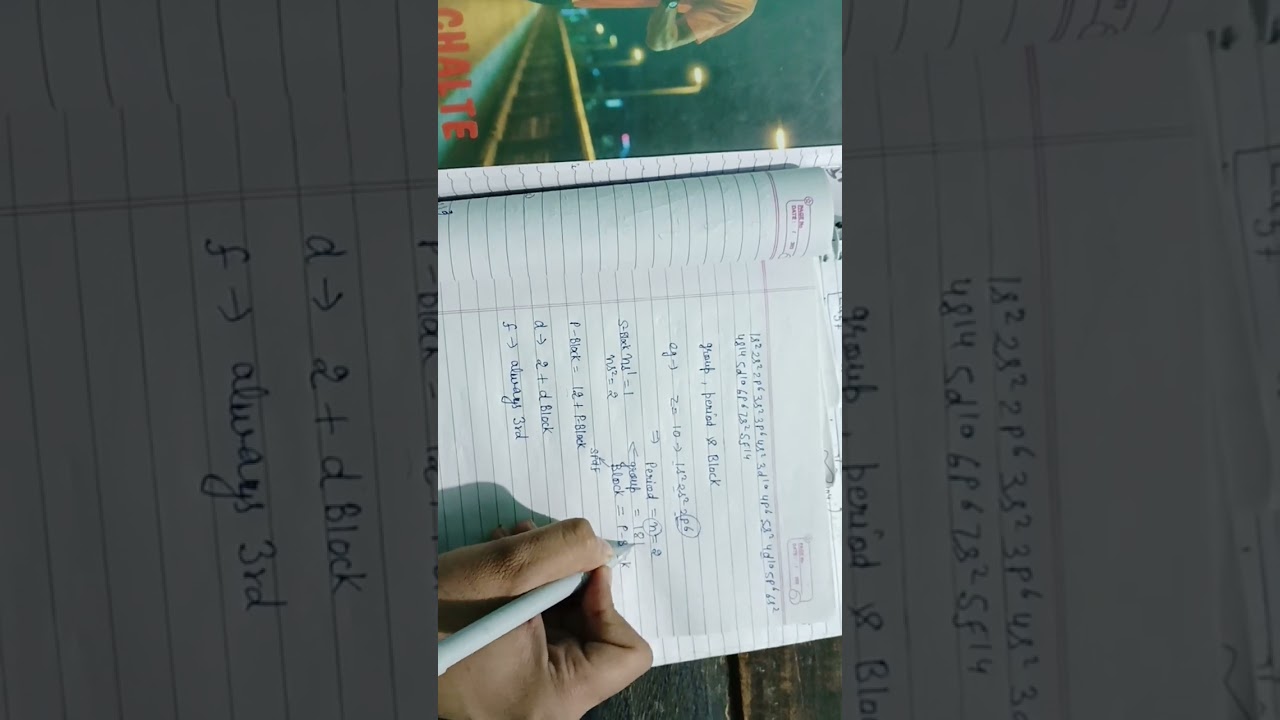 CHALTE
PAGE No.
DATE
PAGE No.
DATE
1s² 2s² 2p⁶ 3s² 3p⁶ 4s² 3d¹⁰ 4p⁶ 5s² 4d¹⁰ 5p⁶ 6s²
4f14 5d¹⁰ 6p⁶ 7s² 5f14
group, period & Block
eg → Z= 10 → 1s² 2s² 2p6
⇒ Period = n = 2
group = 18
Block = P-B k
spdf
S-Block ns¹ = 1
ns² = 2
P-Block = 12 + P-Block
d → 2 + d Block
f → always 3rd